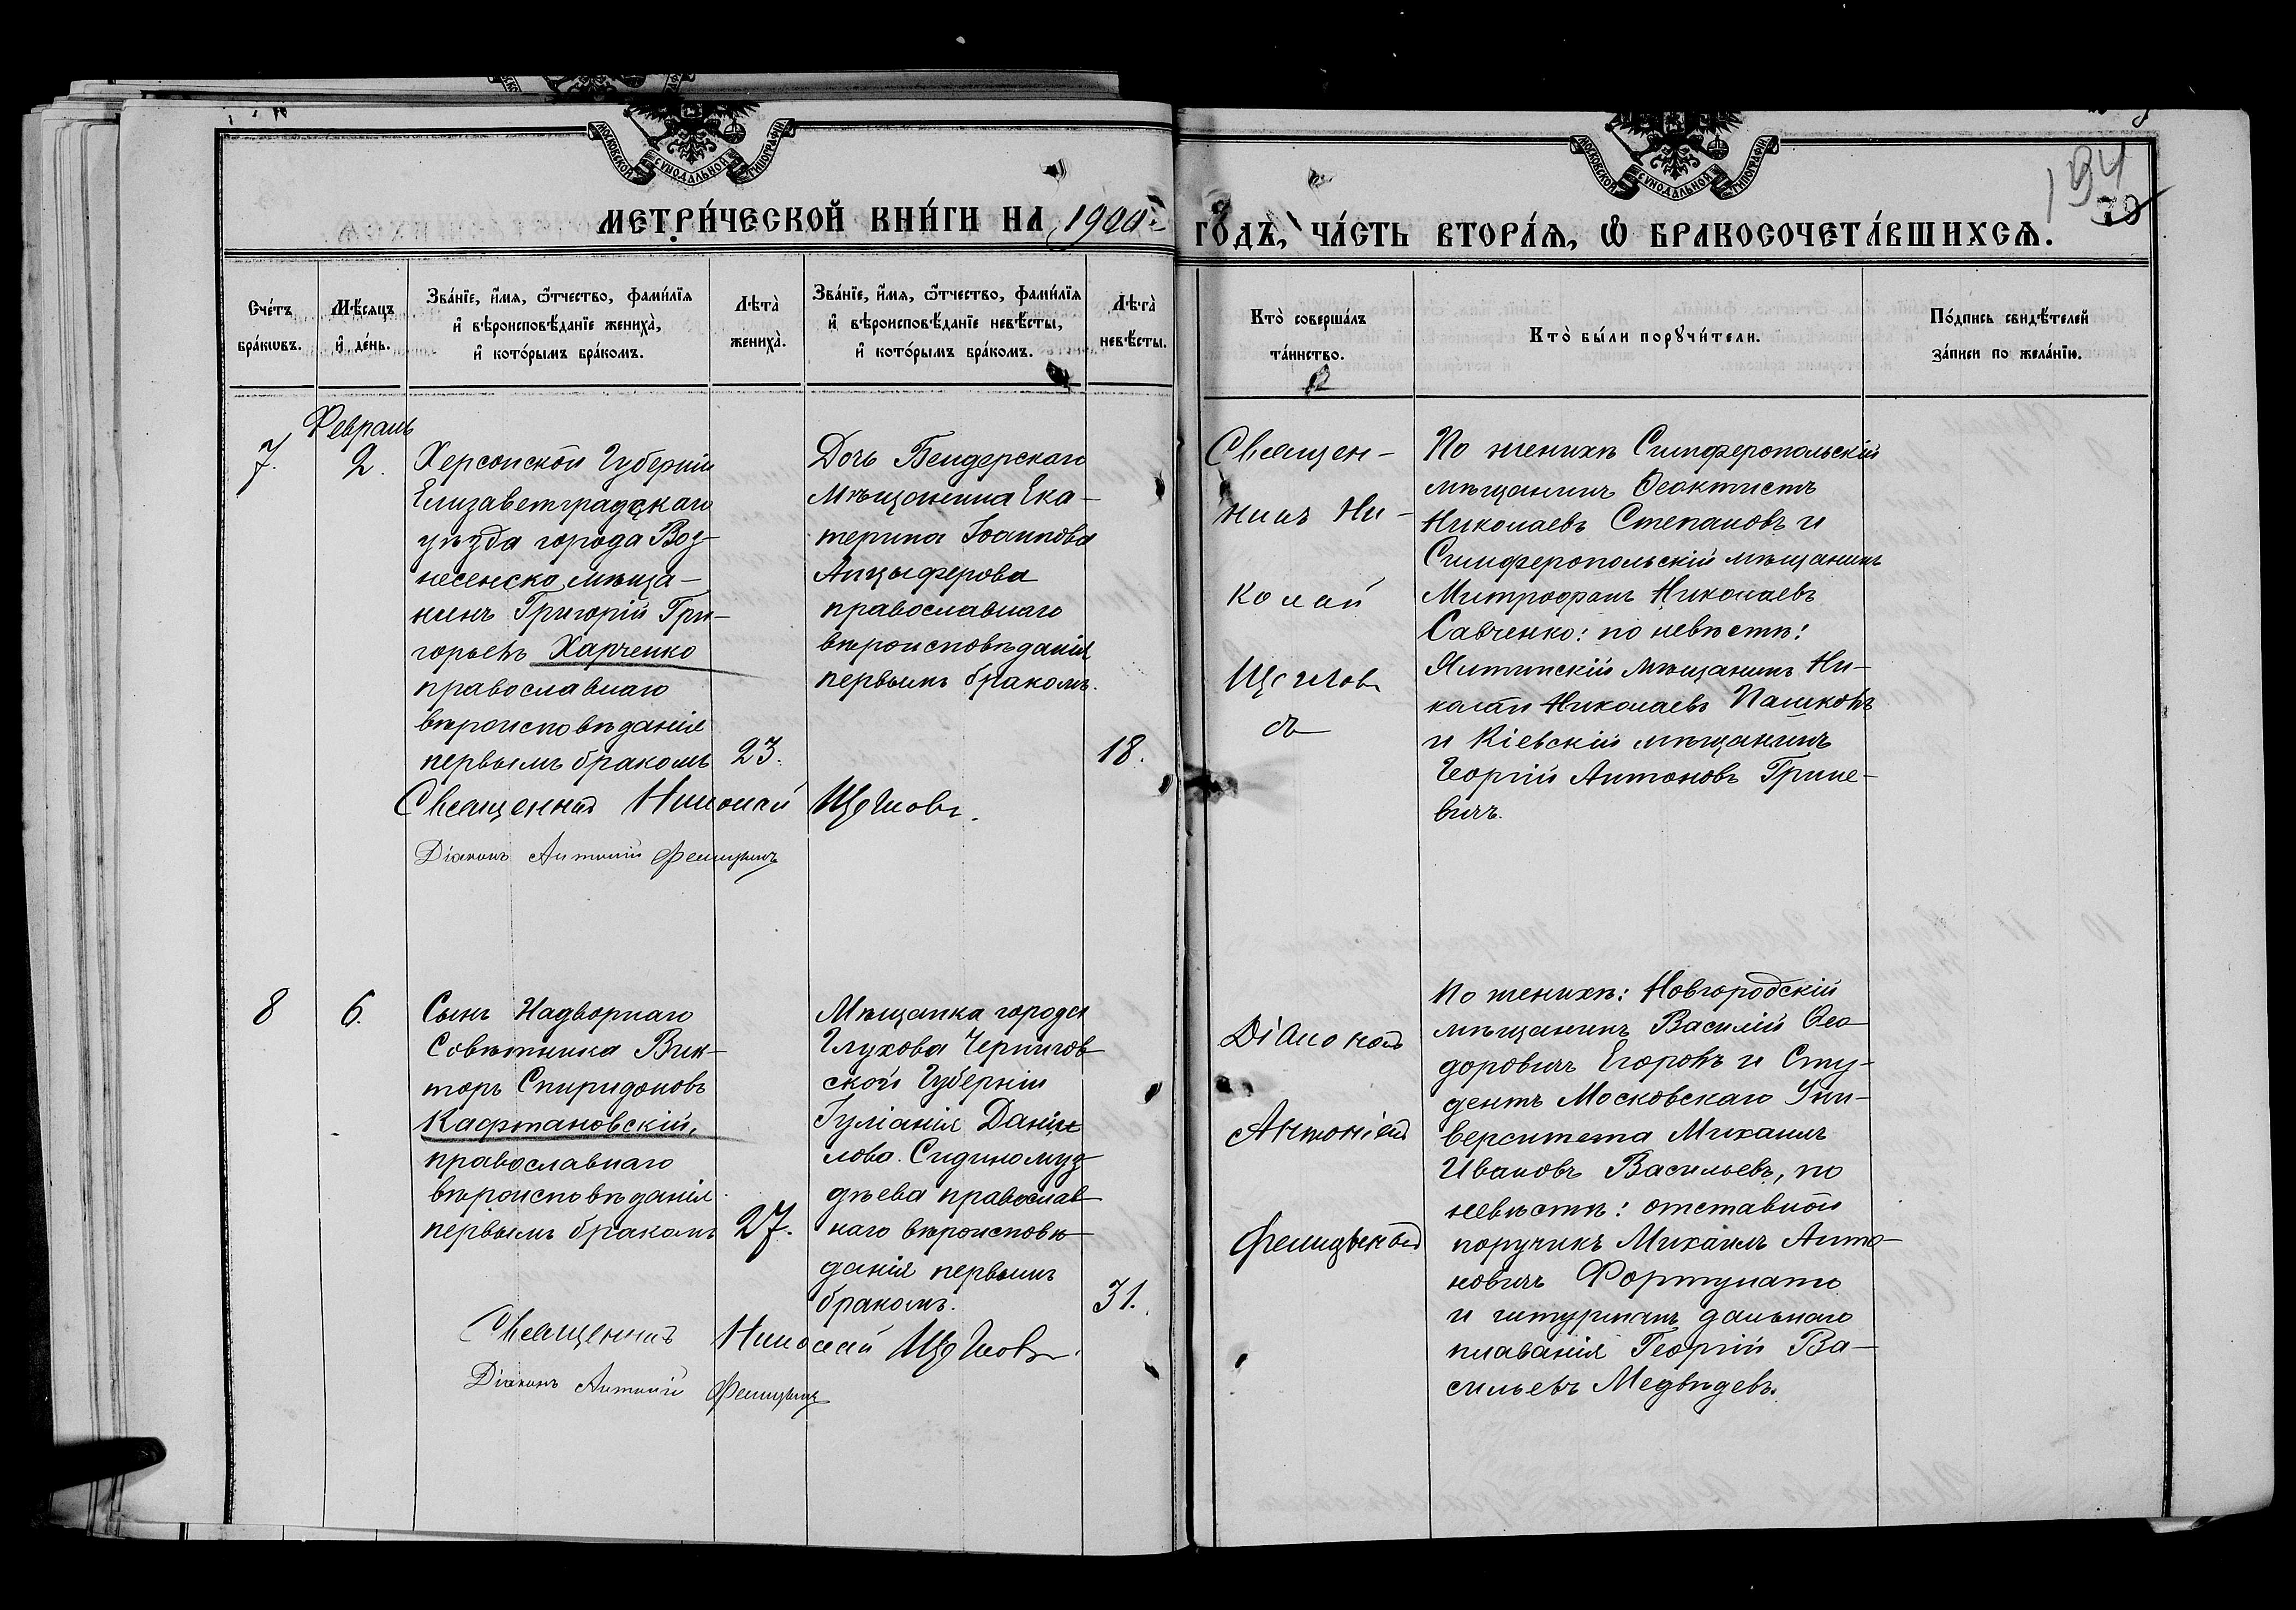 МОСКОВСКОЙ СѴНОДАЛЬНОЙ ТИПОГРАФІИ
МОСКОВСКОЙ СѴНОДАЛЬНОЙ ТИПОГРАФІИ
194
МЕТРИ́ЧЕСКОЙ КНИ́ГИ НА 1900
ГО́ДЪ, ЧА́СТЬ ВТОРА́Ѧ, Ѡ БРАКОСОЧЕТА́ВШИХСѦ.
Сче́тъ
бра́кѡвъ.
Мѣ́сяцъ
и де́нь.
Зва́нїе, и́мя, ѻ́тчество, фами́лїя
и вѣроисповѣ́данїе жениха̀,
и кото́рымъ бра́комъ.
Лѣта̀
жениха̀.
Зва́нїе, и́мя, ѻ́тчество, фами́лїя
и вѣроисповѣ́данїе невѣ́сты,
и кото́рымъ бра́комъ.
Лѣта̀
невѣ́сты.
Кто̀ соверша́лъ
та́инство.
Кто̀ бы́ли порꙋчи́тели.
По́дпись свидѣ́телей
за́писи по жела́нїю.
Февраль
7.
2.
Херсонской Губерніи
Елизаветградскаго
уѣзда города Воз-
несенска, мѣща-
нинъ Григорій Гри-
горьевъ Харченко
православнаго
вѣроисповѣданія
первымъ бракомъ
23.
Дочь Бендерскаго
Мѣщанина Ека-
терина Іоаннова
Анцыферова
православнаго
вѣроисповѣданія
первымъ бракомъ.
18.
Священ-
никъ Ни-
колай
Щегловъ
По женихѣ Симферопольскій
мѣщанинъ Ѳеоктистъ
Николаевъ Степановъ и
Симферопольскій мѣщанинъ
Митрофанъ Николаевъ
Савченко: по невѣстѣ:
Ялтинскій мѣщанинъ Ни-
колай Николаевъ Пашковъ
и Кіевскій мѣщанинъ
Георгій Антоновъ Грине-
вичъ.
Священникъ Николай Щегловъ.
Діаконъ Антоній Фелицынъ
8
6.
Сынъ Надворнаго
Совѣтника Вик-
торъ Спиридоновъ
Кафтановскій,
православнаго
вѣроисповѣданія
первымъ бракомъ
27.
Мѣщанка города
Глухова Чернигов-
ской Губерніи
Іуліанія Дани-
лова
православ-
наго вѣроисповѣ-
данія первымъ
бракомъ.
31.
Діакономъ
Антоніемъ
По женихѣ: Новгородскій
мѣщанинъ Василій Ѳео-
доровичъ Егоровъ и Сту-
дентъ Московскаго Уни-
верситета Михаилъ
Ивановъ Васильевъ, по
невѣстѣ: отставной
поручикъ Михаилъ Анто-
новичъ Фортунато
и штурманъ дальнаго
плаванія Георгій Ва-
сильевъ Медвѣдевъ.
Священникъ Николай Щегловъ.
Діаконъ Антоній Фелицынъ